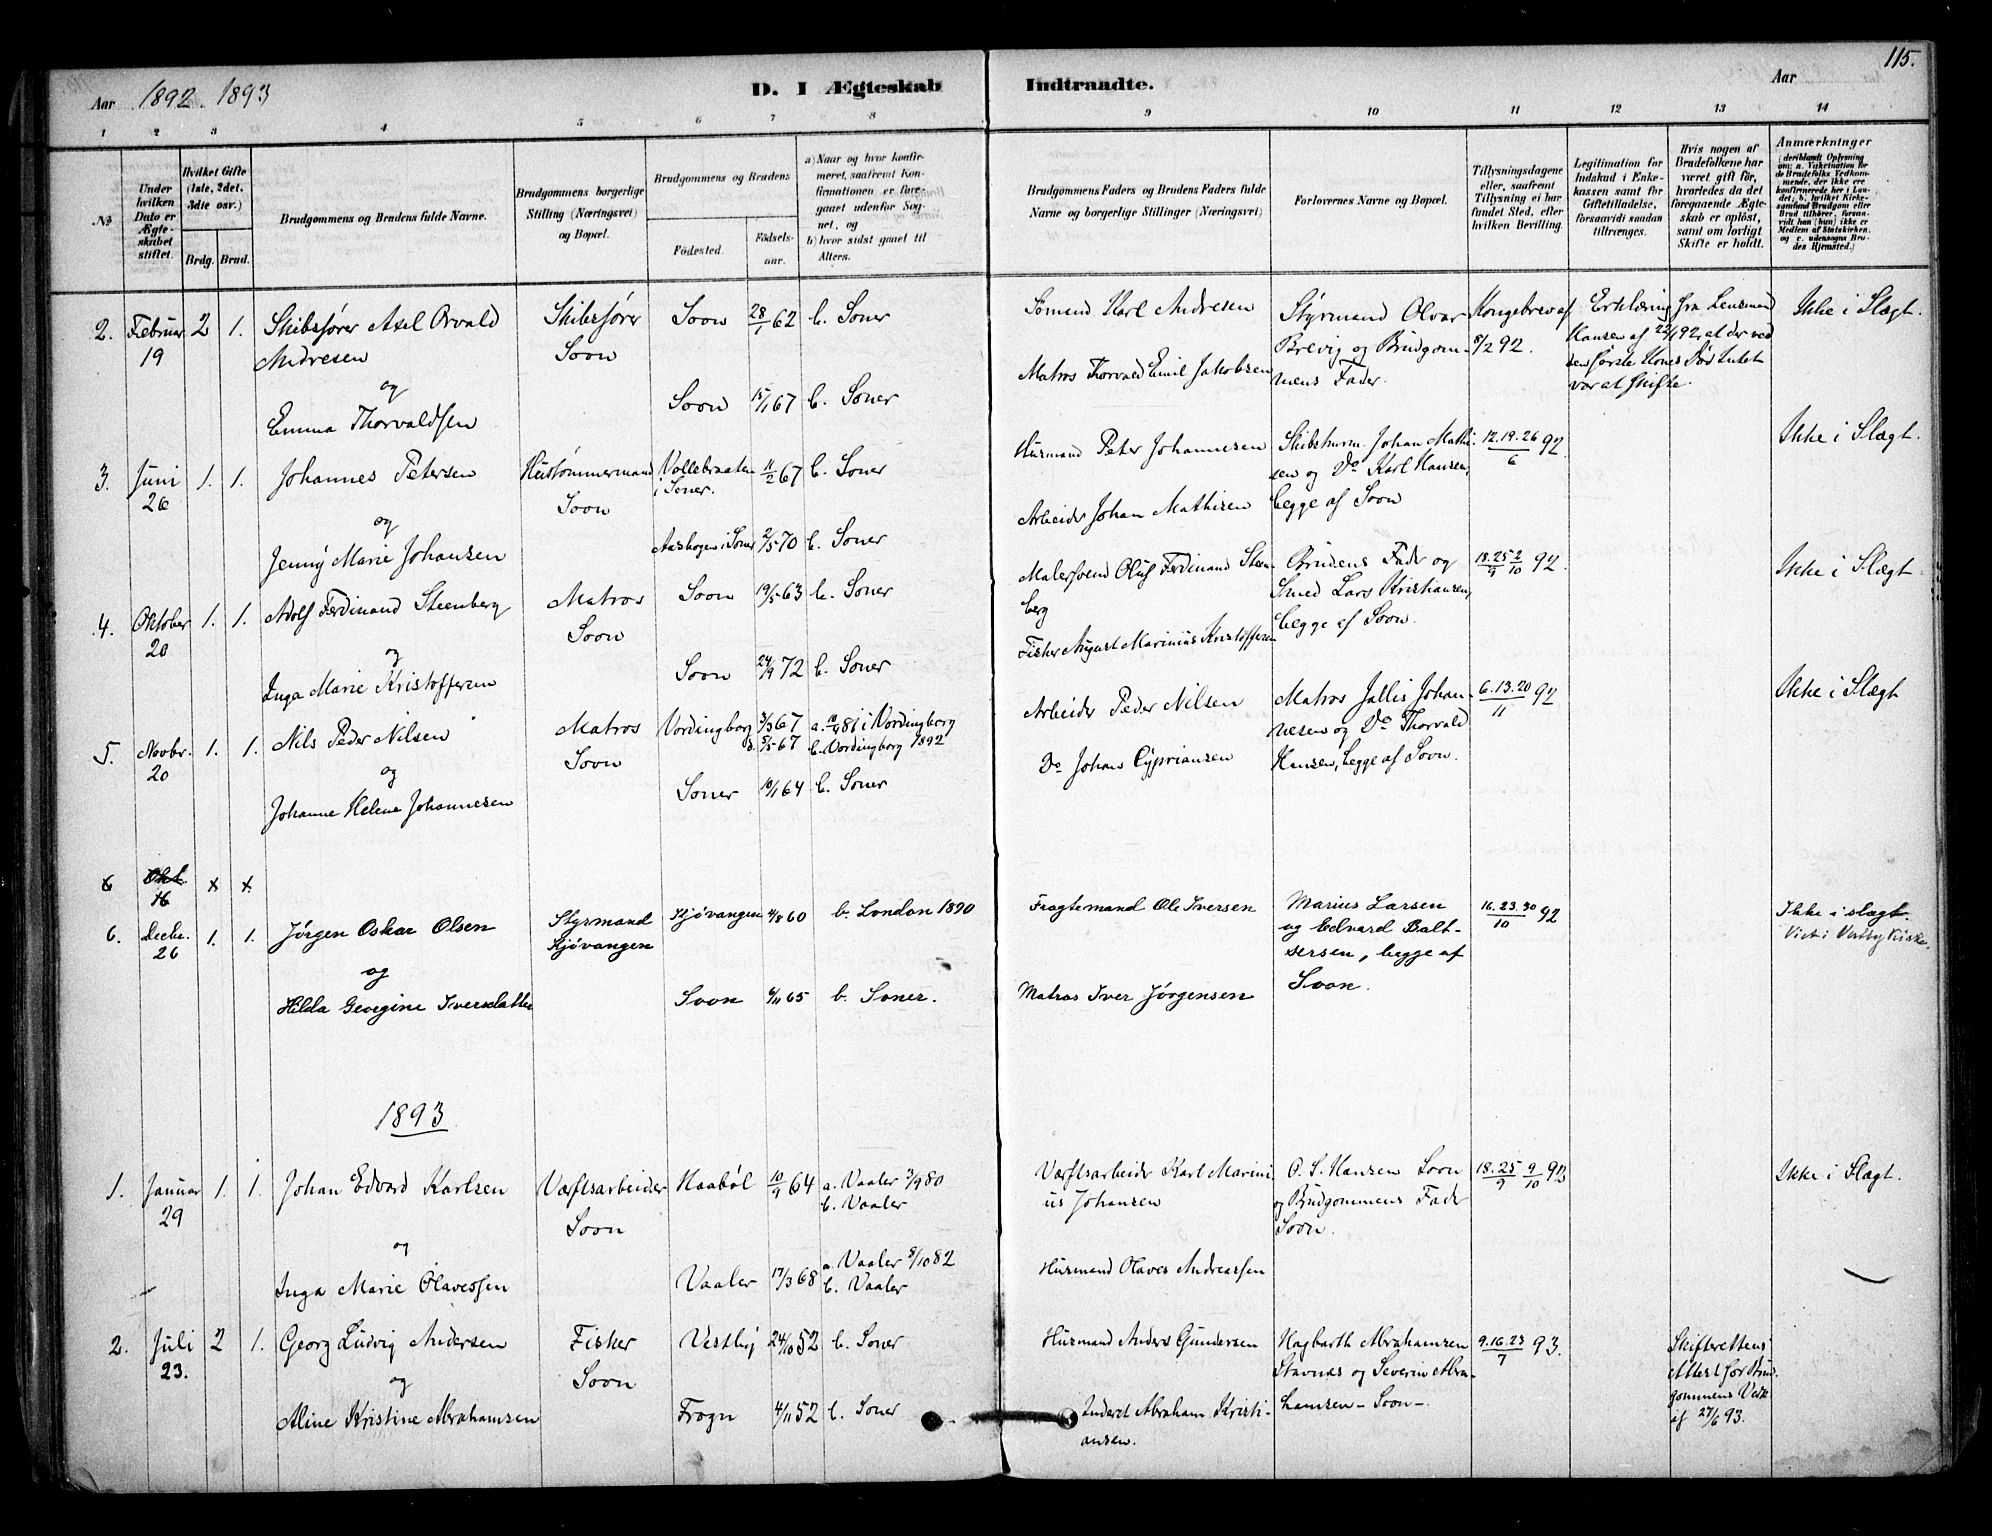 115.
Aar 1892. 1893
D. I Ægteskab Indtraadte.
Aar
1 2 3 4 5 6 7 8 9 10 11 12 13 14
No
Under hvilken Dato er Ægteskabet stiftet.
Hvilket Gifte (1ste, 2det, 3die osv.)
Brdg. Brud.
Brudgommens og Brudens fulde Navne.
Brudgommens borgerlige Stilling (Næringsvei) og Bopæl.
Brudgommens og Brudens
Födested.
Födselsaar.
a) Naar og hvor konfirmeret, saafremt Konfirmationen er foregaaet udenfor Sognet, og
b) hvor sidst gaaet til Alters.
Brudgommens Faders og Brudens Faders fulde Navne og borgerlige Stillinger (Næringsvei)
Forlovernes Navne og Bopæl.
Tillysningsdagene eller, saafremt Tillysning ei har fundet Sted, efter hvilken Bevilling.
Legitimation for Indskud i Enkekassen samt for Giftetilladelse, forsaavidt saadan tiltrænges.
Hvis nogen af Brudefolkene har været gift för, hvorledes da det foregaaende Ægteskab er oplöst, samt om lovligt Skifte er holdt.
Anmærkninger
(deriblandt Oplysning om: a. Vakcination for de Brudefolks Vedkommende, der ikke ere konfirmerede her i Landet; b. hvilket Kirkesamfund Brudgom eller Brud tilhörer, forsaavidt han (hun) ikke er Medlem af Statskirken, og c. udensogns Brudes Hjemsted.)
2. Februar 19 2 1. Skibsfører Axel Orvald Andresen
og
Emma Thorvaldsen
Skibsfører Soon
Soon 28/1 62 b. Soner
Soon 15/1 67 b. Soner
Sömand Karl Andresen
Matros Thorvald Emil Jakobsen
Styrmand Olvar Brevig og Brudgommens Fader.
Kongebrev af 8/2 92.
Erklæring fra Lensmand Hansen af 22/1 92, at der ved den første Kones Død Intet var at skifte.
Ikke i Slægt.
3. Juni 26 1. 1. Johannes Petersen
og
Jenny Marie Johansen
Hustømmermand Soon
Vollebraaten i Soner. 11/2 67 b. Soner
Aashogen i Soner 2/5 70 b. Soner
Husmand Peter Johannesen
Arbeider Johan Mathisen
Skibstørm. Johan Mathisen og Do Karl Hansen, begge af Soon
12.19.26/6 92.
Ikke i Slægt.
4. Oktober 20 1. 1. Adolf Ferdinand Steenberg
og
Inga Marie Kristoffersen
Matros Soon
Soon 19/5 63 b. Soner
Soon 24/9 72 b. Soner
Malersvend Oluf Ferdinand Steenberg
Fisker August Marinius Kristoffersen
Brudens Fader og Smed Lars Kristiansen, begge af Soon.
18.25/9 2/10 92.
Ikke i Slægt
5. Novbr. 20 1. 1. Nils Peder Nilsen
og
Johanne Helene Johannesen
Matros Soon
Vordingborg 3/3 67 a. 10/4 81 i Vordingborg
d. 5/5 67 b. Vordingborg 1892
Soner 10/1 64 b. Soner
Arbeider Peder Nilsen
Do Johan Cyprianсен
Matros Jallis Johannesen og Do Thorvald Hansen, begge af Soon.
6.13.20/11 92
Ikke i Slægt
6 Okt. 16 x x.
6. Decbr. 26 1. 1. Jørgen Oskar Olsen
og
Hilda Georgine Iversdatter
Styrmand Kjøvangen
Kjøvangen 4/8 60 b. London 1890
Soon 6/11 65 b. Soner.
Fragtemand Ole Iversen
Matros Iver Jørgensen
Marius Larsen og Edvard Baltsersen, begge af Soon.
16.23.30/10 92
Ikke i slægt.
Viet i Vestby Kirke.
1893
1. Januar 29 1. 1. Johan Edvard Karlsen
og
Inga Marie Olavessen
Værftsarbeider Soon
Haabøl 10/9 64 a. Vaaler 3/9 80
b. Vaaler
Vaaler 17/3 68 a. Vaaler 8/10 82
b. Vaaler
Værftsarbeider Karl Marinius Johansen
Husmand Olaves Andreassen
O. S. Hansen Soon og Brudgommens Fader Soon.
18.25/9 9/10 92
Ikke i Slægt.
2. Juli 23. 2 1. Georg Ludvig Andersen
og
Aline Kristine Abrahamsen
Fisker Soon
Vestby 24/10 52 b. Soner
Frogn 4/11 52 b. Soner
Husmand Anders Gundersen
Inderst Abraham Kristiansen.
Hagbarth Abrahamsen Stavnes og Severin Abrahamsen - Soon -.
9.16.23/7 93.
Skifterettens Attest for Brudgommens Vedk. af 27/6 93.